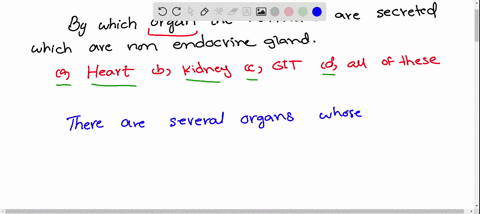 By which organ the are secreted
which are non endocrine gland.
(a) Heart (b) Kidney (c) GIT (d) all of these
There are several organs whose